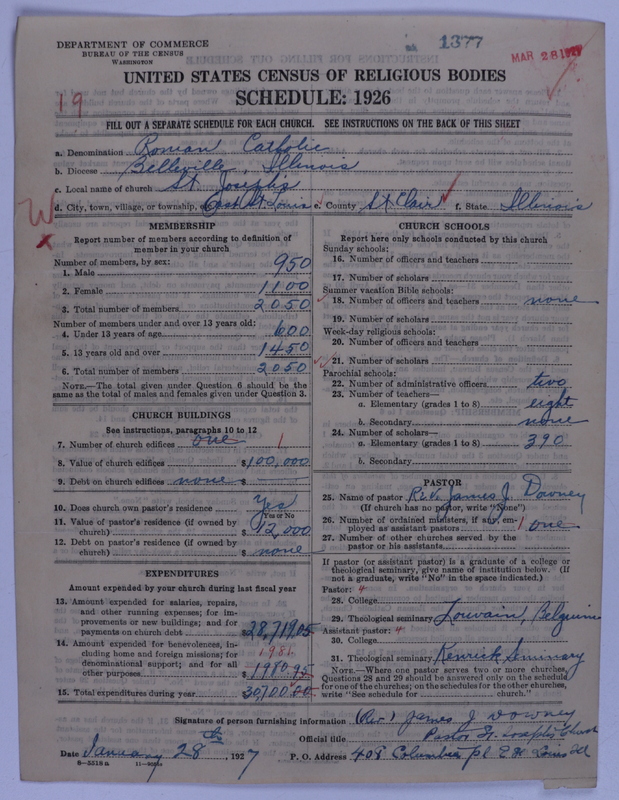 1377
MAR 28 1927
DEPARTMENT OF COMMERCE
BUREAU OF THE CENSUS
WASHINGTON
UNITED STATES CENSUS OF RELIGIOUS BODIES
SCHEDULE: 1926
19
FILL OUT A SEPARATE SCHEDULE FOR EACH CHURCH. SEE INSTRUCTIONS ON THE BACK OF THIS SHEET
a. Denomination Roman Catholic
b. Diocese Belleville, Illinois
c. Local name of church St. Joseph's
d. City, town, village, or township, East St. Louis e. County St Clair f. State Illinois
W
x
MEMBERSHIP
Report number of members according to definition of
member in your church
Number of members, by sex:
1. Male 950
2. Female 1100
3. Total number of members 2050
Number of members under and over 13 years old:
4. Under 13 years of age 600
5. 13 years old and over 1450
6. Total number of members 2050
NOTE.—The total given under Question 6 should be the
same as the total of males and females given under Question 3.
CHURCH BUILDINGS
See instructions, paragraphs 10 to 12
7. Number of church edifices one 1
8. Value of church edifices $100,000
9. Debt on church edifices none $
10. Does church own pastor's residence Yes
(Yes or No)
11. Value of pastor's residence (if owned by
church) $12,000
12. Debt on pastor's residence (if owned by
church) $ none
EXPENDITURES
Amount expended by your church during last fiscal year
13. Amount expended for salaries, repairs,
and other running expenses; for im-
provements or new buildings; and for
payments on church debt 28,719.05
14. Amount expended for benevolences, in-
cluding home and foreign missions; for
denominational support; and for all
other purposes $1980.95
1981
15. Total expenditures during year 30,700.00
CHURCH SCHOOLS
Report here only schools conducted by this church
Sunday schools:
16. Number of officers and teachers
17. Number of scholars
Summer vacation Bible schools:
18. Number of officers and teachers none
19. Number of scholars
Week-day religious schools:
20. Number of officers and teachers
21. Number of scholars
Parochial schools:
22. Number of administrative officers two
23. Number of teachers—
a. Elementary (grades 1 to 8) eight
b. Secondary none
24. Number of scholars—
a. Elementary (grades 1 to 8) 390
b. Secondary
PASTOR
25. Name of pastor Rev. James J. Downey
(If church has no pastor, write "None")
26. Number of ordained ministers, if any, em-
ployed as assistant pastors 1 one
27. Number of other churches served by the
pastor or his assistants
If pastor (or assistant pastor) is a graduate of a college or
theological seminary, give name of institution below. (If
not a graduate, write "No" in the space indicated.)
Pastor: 4
28. College
29. Theological seminary Louvain, Belguim
Assistant pastor: 4
30. College
31. Theological seminary Kenrick Seminary
NOTE.—Where one pastor serves two or more churches,
Questions 28 and 29 should be answered only on the schedule
for one of the churches; on the schedules for the other churches,
write "See schedule for church."
Signature of person furnishing information (Rev.) James J Downey
Official title Pastor St. Joseph's Church
Date January 28th, 1927 P. O. Address 408 Columbia pl. E St Louis Ill
8—5518a